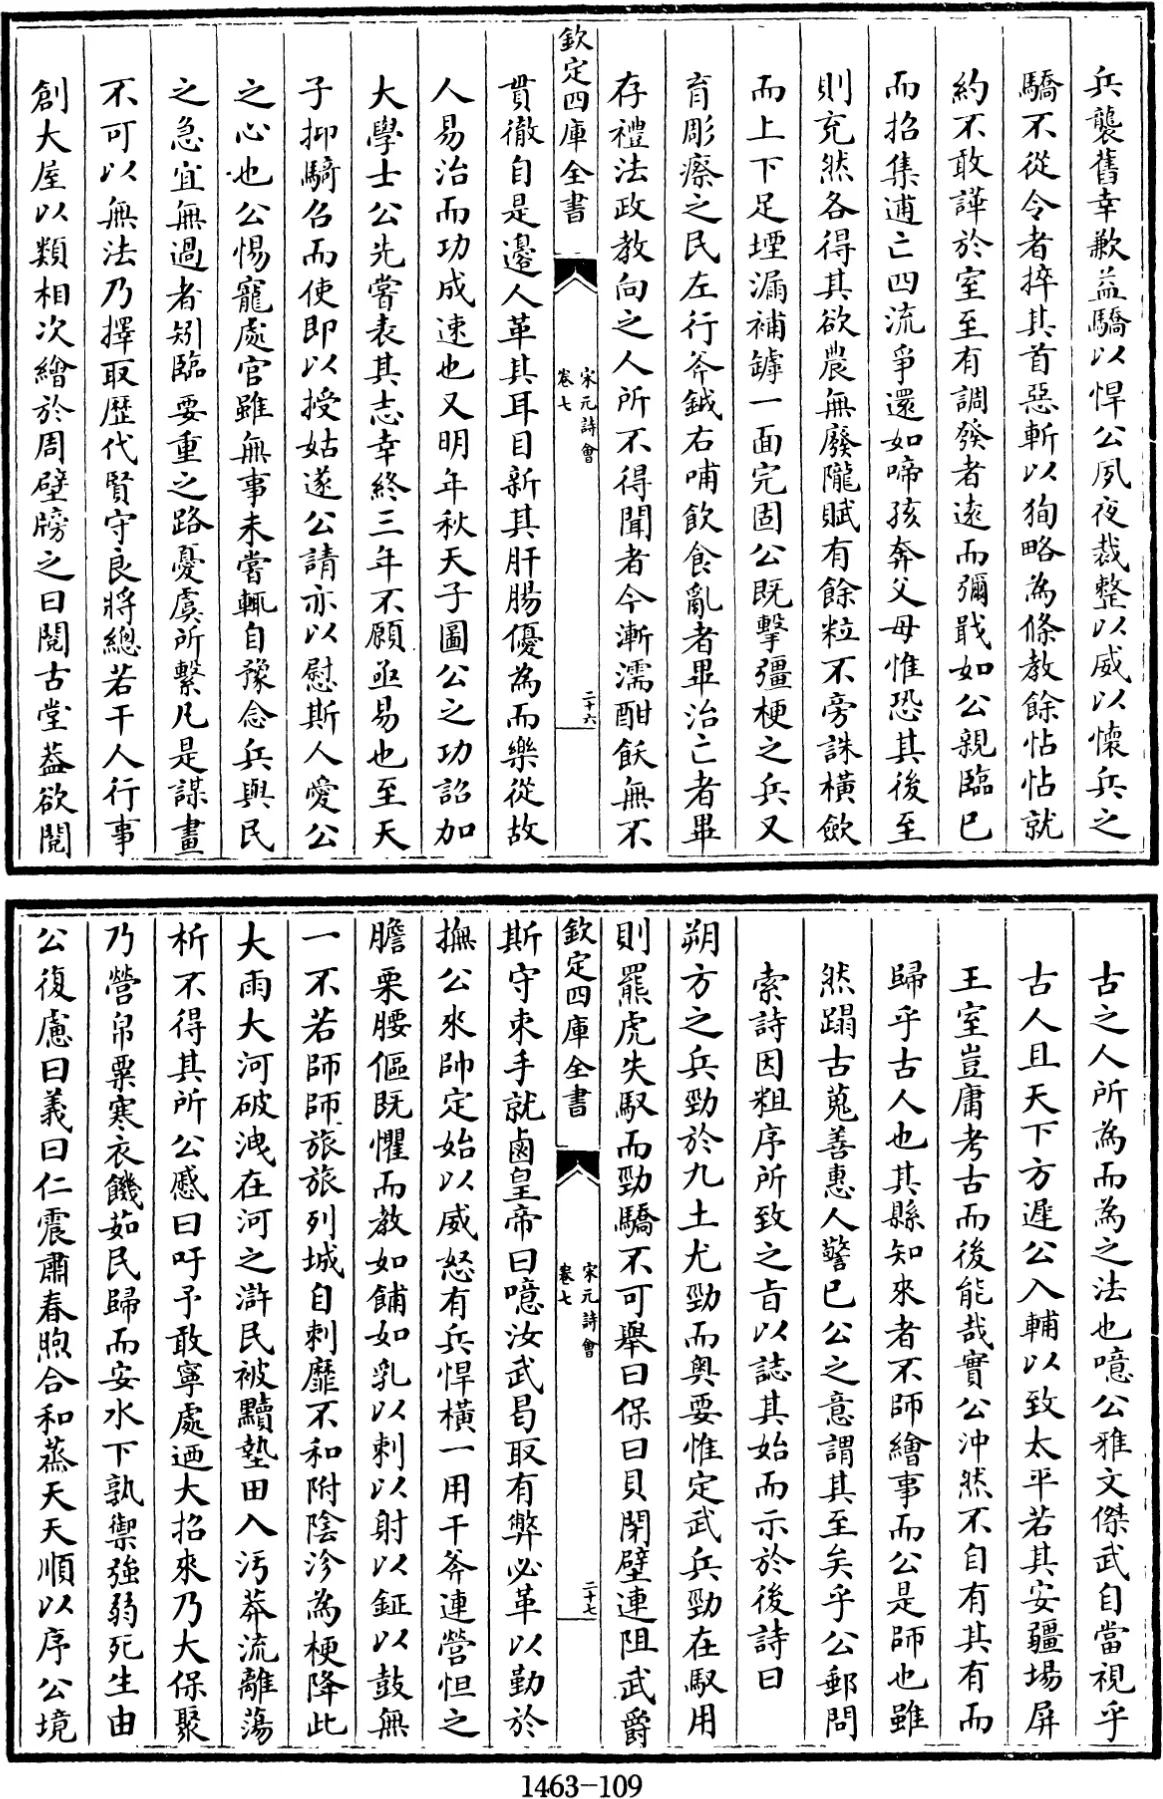 兵襲舊幸歉益驕以悍公夙夜裁整以威以懷兵之
驕不從令者捽其首惡斬以狥略為條教餘怗怗就
約不敢譁於室至有調發者遠而彌戢如公親臨已
而招集逋亡四流爭還如啼孩奔父母惟恐其後至
則充然各得其欲農無廢隴賦有餘粒不旁誅橫斂
而上下足堙漏補罅一面完固公既擊彊梗之兵又
育彫瘵之民左行斧鉞右哺飲食亂者畢治亡者畢
存禮法政教向之人所不得聞者今漸濡酣飫無不
欽定四庫全書
宋元詩會
卷七
二十六
貫徹自是邊人革其耳目新其肝腸優為而樂從故
人易治而功成速也又明年秋天子圖公之功詔加
大學士公先嘗表其志幸終三年不願亟易也至天
子抑騎召而使即以授姑遂公請亦以慰斯人愛公
之心也公惕寵處官雖無事未嘗輒自豫念兵與民
之急宜無過者矧臨要重之路憂虞所繫凡是謀畫
不可以無法乃擇取歷代賢守良將總若干人行事
創大屋以類相次繪於周壁牓之曰閱古堂蓋欲閱
古之人所為而為之法也噫公雅文傑武自當視乎
古人且天下方遲公入輔以致太平若其安疆場屏
王室豈庸考古而後能哉實公沖然不自有其有而
歸乎古人也其縣知來者不師繪事而公是師也雖
然蹋古蒐善惠人警已公之意謂其至矣乎公郵問
索詩因粗序所致之旨以誌其始而示於後詩曰
朔方之兵勁於九土尤勁而奧要惟定武兵勁在馭用
則羆虎失馭而勁驕不可舉曰保曰貝閉壁連阻武爵
欽定四庫全書
宋元詩會
卷七
二十七
斯守束手就鹵皇帝曰噫汝武曷取有弊必革以勤於
撫公來帥定始以威怒有兵悍橫一用干斧連營怛之
膽栗腰傴既懼而教如餔如乳以刺以射以鉦以鼓無
一不若師師旅旅列城自刺靡不和附陰沴為梗降此
大雨大河破洩在河之滸民被黷墊田入污莽流離蕩
析不得其所公慼曰吁予敢寧處迺大招來乃大保聚
乃營帛粟寒衣饑茹民歸而安水下孰禦強弱死生由
公復慮曰義曰仁震肅春煦合和蒸天天順以序公境
1463-109